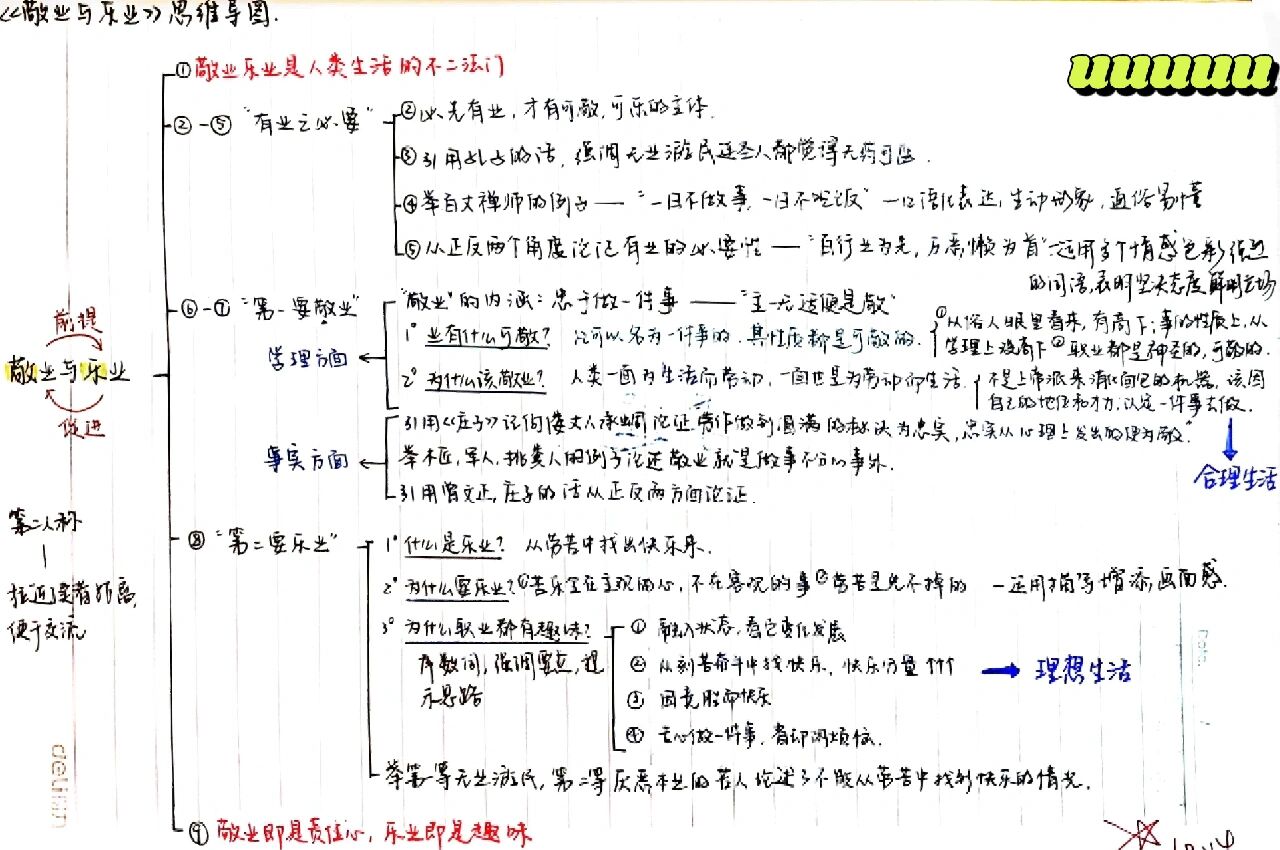 《敬业与乐业》思维导图.
uuuuuu
①敬业乐业是人类生活的不二法门
②-⑤ "有业之必要"
②必先有业，才有可敬，可乐的主体.
③引用孔子的话，强调无业游民连圣人都觉得无药可医.
④举百丈禅师的例子——"一日不做事，一日不吃饭" 一口语化表达，生动形象，通俗易懂
⑤从正反两个角度论证有业的必要性——"百行业为先，万恶懒为首"
的词语，表明坚决态度鲜明立场
⑥-⑦ "第一要敬业"
"敬业"的内涵：忠于做一件事——"主一无适便是敬"
前提
敬业与乐业
促进
学理方面
1° 业有什么可敬？ 凡可以名为一件事的，其性质都是可敬的.
①从俗人眼里看来，有高下；事的性质上，从
学理上没高下②职业都是神圣的，可敬的.
2° 为什么该敬业？ 人类一面为生活而劳动，一面也是为劳动而生活.
不是上帝派来消化面包的机器，该因
自己的地位和才力，认定一件事去做.
合理生活
事实方面
引用《庄子》记佝偻丈人承蜩论证 劳作做到圆满的秘诀为忠实，忠实从心理上发出的便为敬"
举木匠，军人，挑粪人的例子论述敬业就是做事不分心事外.
引用曾文正，庄子的话从正反两方面论证.
第二人称
拉近读者距离，
便于交流
⑧ "第二要乐业"
1° 什么是乐业？ 从劳苦中找出快乐来.
2° 为什么要乐业？①苦乐全在主观的心，不在客观的事②劳苦是免不掉的 一运用描写增添画面感.
3° 为什么职业都有趣味？
序数词，强调要点，提
示思路
① 融入状态，看它变化发展
② 从刻苦奋斗中找快乐，快乐分量↑↑↑
③ 因竞胜而快乐
④ 专心做一件事，省却闲烦恼.
理想生活
举第一等无业游民，第二等厌恶本业的苦人论述了不能从劳苦中找到快乐的情况.
⑨ 敬业即是责任心，乐业即是趣味
deli